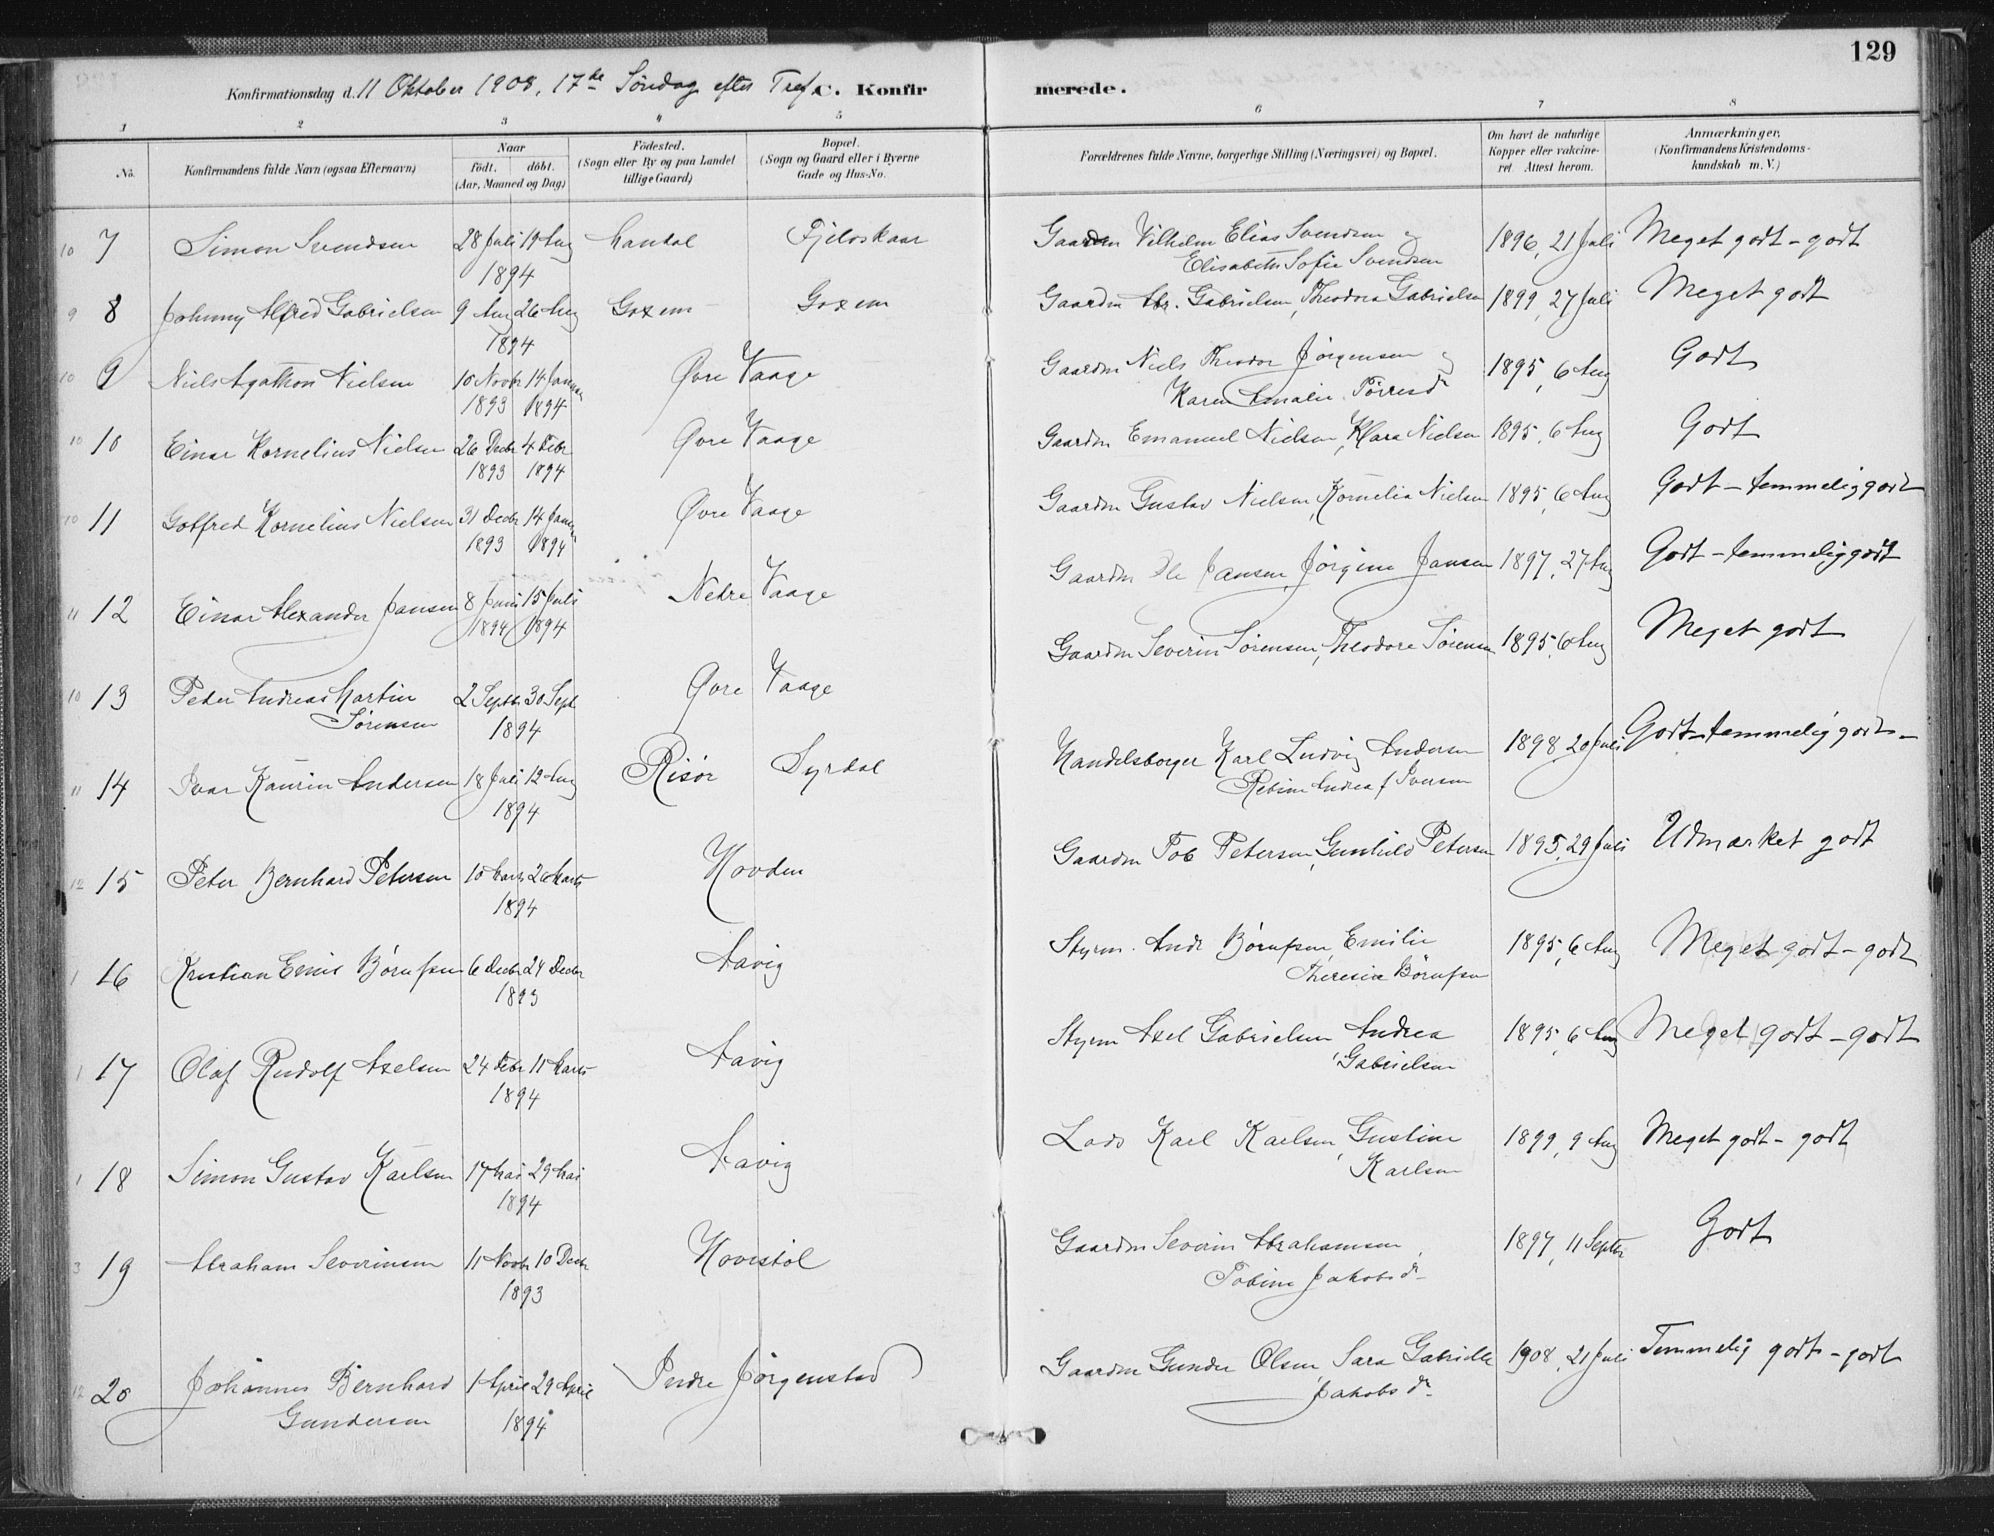 129
Konfirmationsdag d. 11 Oktober 1908, 17de Søndag efter Tref. C. Konfirmerede.
1 2 3 4 5 6 7 8
No. Konfirmandens fulde Navn (ogsaa Efternavn) Naar födt. döbt. (Aar, Maaned og Dag) Födested. (Sogn eller By og paa Landet tillige Gaard) Bopæl. (Sogn og Gaard eller i Byerne Gade og Hus-No. Forældrenes fulde Navne, borgerlige Stilling (Næringsvei) og Bopæl. Om havt de naturlige Kopper eller vakcineret. Attest herom. Anmærkninger, (Konfirmandens Kristendomskundskab m. V.)
10 7 Simon Svendsen 28 Juli 19 Aug Mandal Fjeloskaar Gaardm Vilhelm Elias Svendsen og 1896, 21 Juli Meget godt - godt
1894 Elisabeth Sofie Svendsen
9 8 Johnny Alfred Gabrielsen 9 Aug 26 Aug Goxem Goxem Gaardm Abr. Gabrielsen, Theodora Gabrielsen 1899, 27 Juli Meget godt
1894
10 9 Niels Agathon Nielsen 10 Novbr 14 Januar Øvre Vaage Gaardm Niels Theodor Jørgensen og 1895, 6 Aug Godt
1893 1894 Karen Amalie Pørresdr
10 10 Einar Kornelius Nielsen 26 Decbr 4 Febr Øvre Vaage Gaardm Emanuel Nielsen, Klara Nielsen 1895, 6 Aug Godt
1893 1894
10 11 Gotfred Kornelius Nielsen 31 Decbr 14 Januar Øvre Vaage Gaardm Gustav Nielsen, Kornelia Nielsen 1895, 6 Aug Godt - temmelig godt
1893 1894
11 12 Einar Alexander Jansen 8 Juni 15 Juli Nedre Vaage Gaardm Ole Jansen, Jørgine Jansen 1897, 27 Aug Godt - temmelig godt
1894 1894
10 13 Peter Andreas Martin 2 Septbr 30 Sept Øvre Vaage Gaardm Severin Sørensen, Theodore Sørensen 1895, 6 Aug Meget godt
Sørensen 1894
11 14 Ivar Kaurin Andersen 18 Juli 12 Aug Risør Syrdal Handelsborger Karl Ludvig Andersen 1898, 20 Juli Godt - temmelig godt -
1894 Rebine Andrea f Iversen
12 15 Peter Bernhard Petersen 10 Marts 26 Marts Hovden Gaardm Tob Petersen, Gunhild Petersen 1895, 29 Juli Udmærket godt
1894
1 16 Kristian Emil Børufsen 6 Decbr 24 Decbr Aavig Styrm. Andr Børufsen, Emilie 1895, 6 Aug Meget godt - godt
1893 Theresia Børufsen
1 17 Olaf Rudolf Axelsen 24 Febr 11 Marts Aavig Styrm Axel Gabrielsen, Andrea 1895, 6 Aug Meget godt - godt
1894 Gabrielsen
1 18 Simon Gustav Karlsen 17 Mai 29 Mai Aavig Lods Karl Karlsen, Gustine 1899, 9 Aug Meget godt - godt
1894 Karlsen
3 19 Abraham Severinsen 11 Novbr 10 Decbr Hovestøl Gaardm Severin Abrahamsen, 1897, 11 Septbr Godt
1893 Tobine Jakobsdr
12 20 Johannes Bernhard 1 April 29 April Indre Jørgenstad Gaardm Gunder Olsen, Sara Gabrielle 1908, 21 Juli Temmelig godt - godt
Gundersen 1894 Jakobsdr